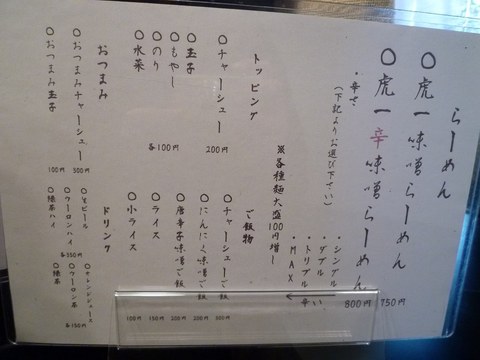 らーめん
○虎一味噌らーめん 750円
○虎一辛味噌らーめん 800円
・辛さ
(下記よりお選び下さい)
・シンプル
・ダブル
・トリプル
・MAX
辛い
※各種麺大盛100円増し
トッピング
○チャーシュー 200円
○玉子
○もやし
○のり
○水菜
各100円
おつまみ
○おつまみチャーシュー 300円
○おつまみ玉子 100円
ご飯物
○チャーシューご飯
○にんにく味噌ご飯 200円
○唐辛子味噌ご飯 200円
○ライス 150円
○小ライス 100円
ドリンク
○生ビール
○ウーロンハイ
○緑茶ハイ
各350円
○オレンジジュース
○ウーロン茶
○緑茶
各150円